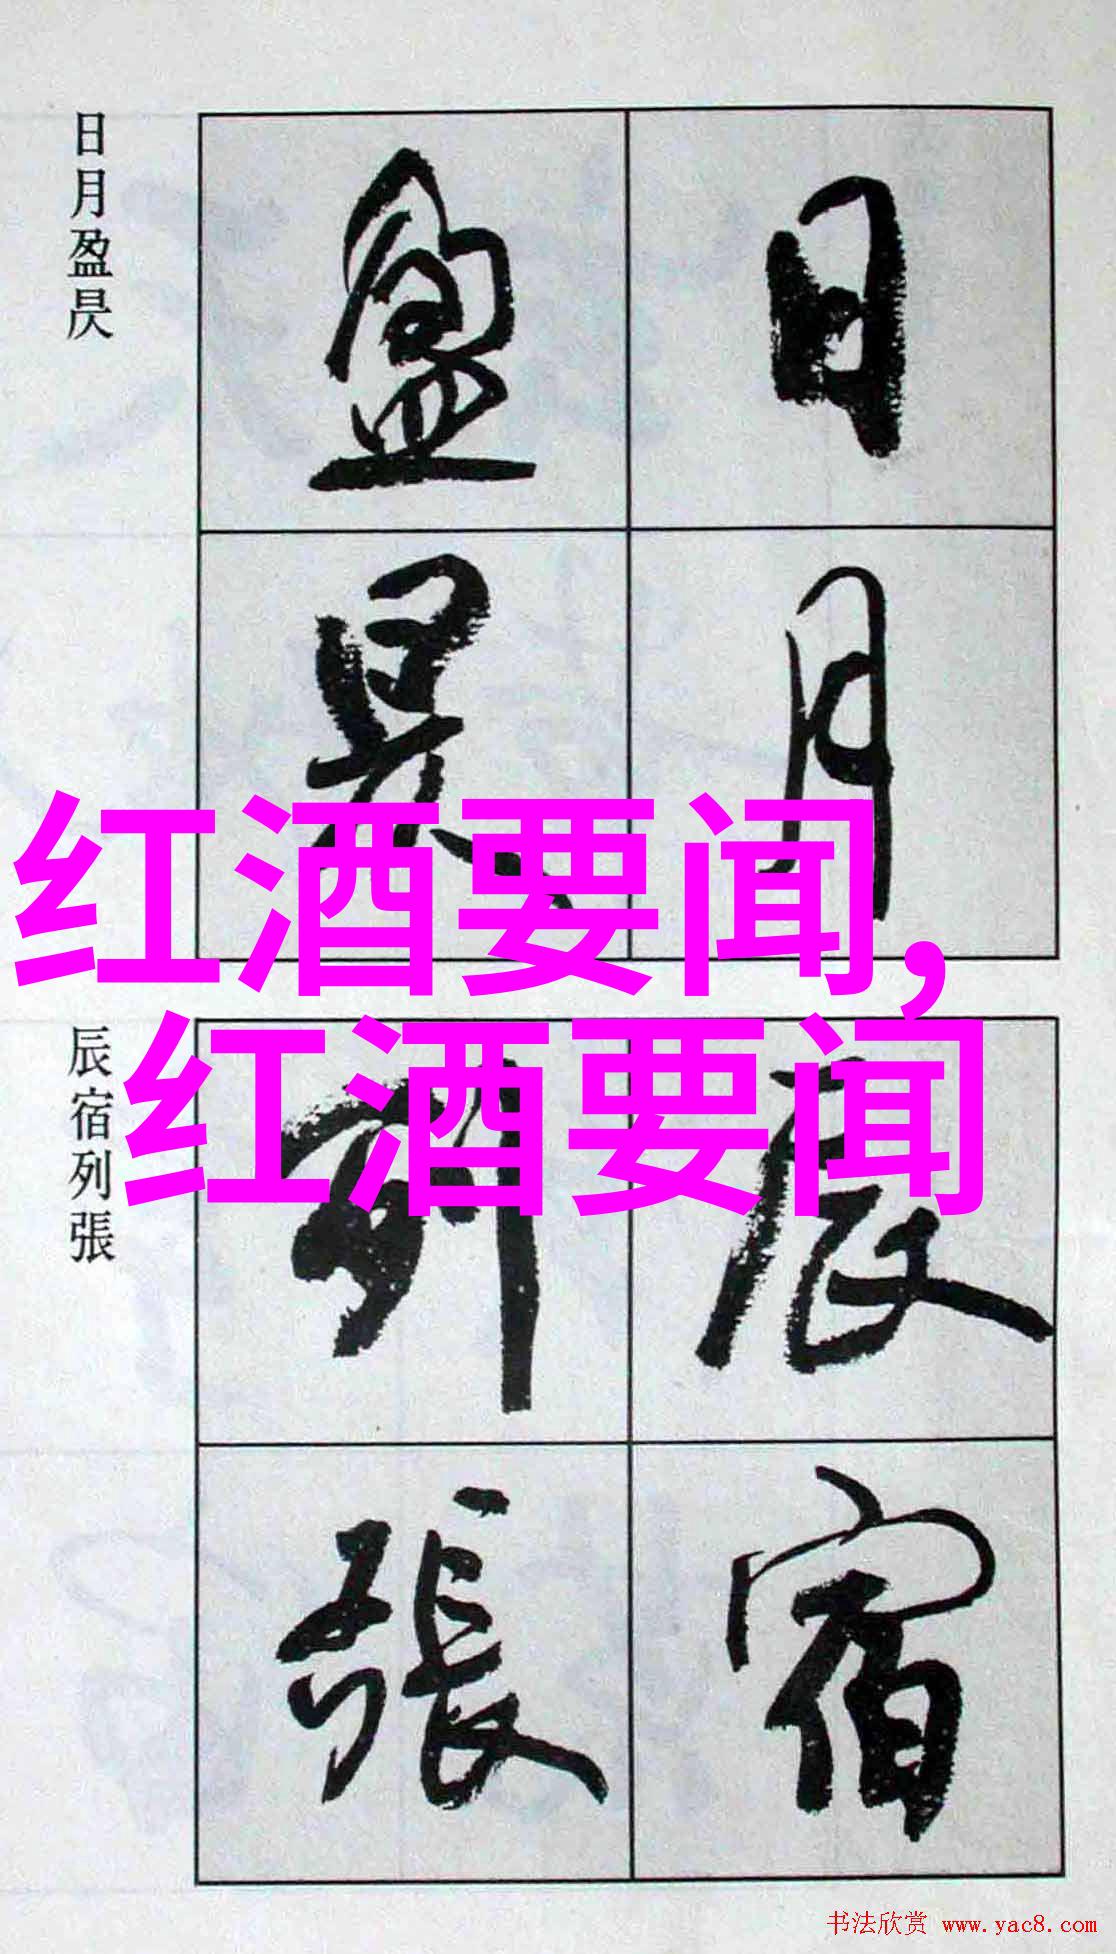 日月
盈昃
日月盈昃
红酒要闻,
红酒要闻
辰宿
列張
辰宿列張
书法欣赏 www.yac8.com